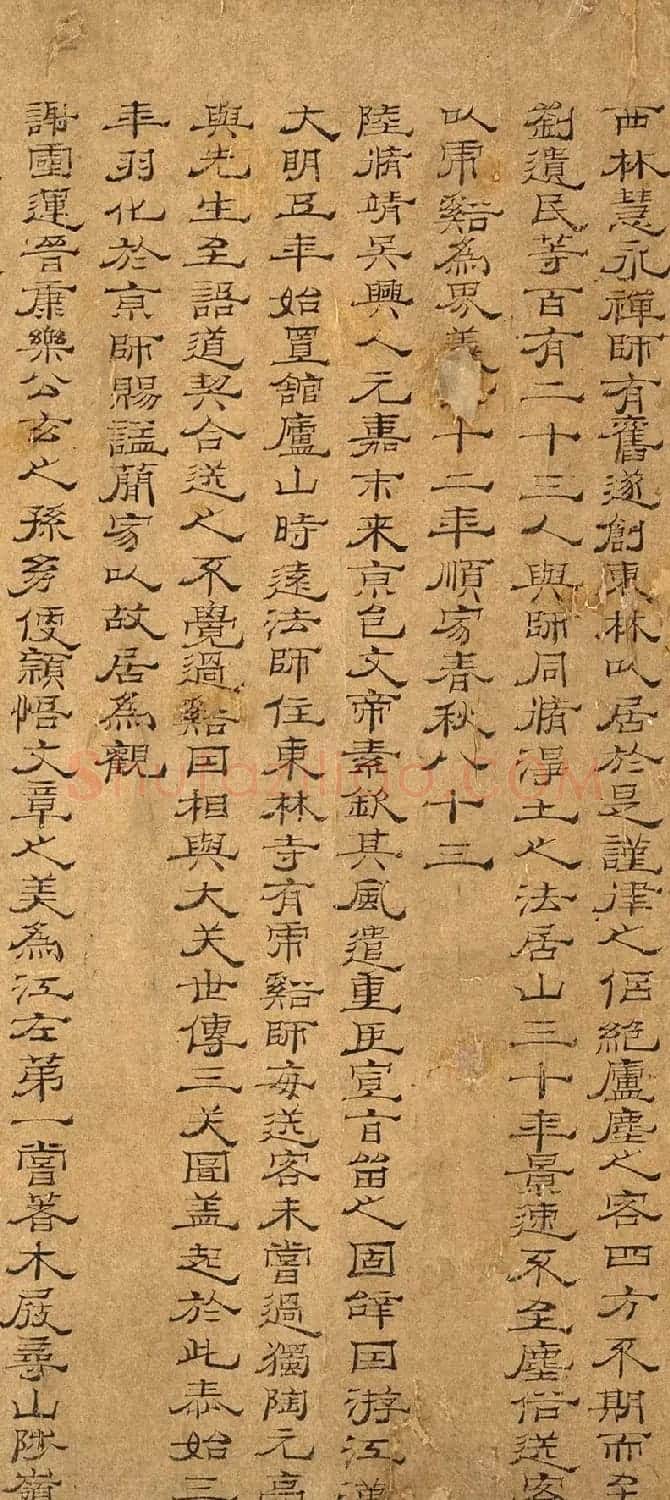 西林慧永禪師有舊遂創東林以居於是謹律之侶絕廬塵之客四方不期而至
劉遺民等百有二十三人與師同脩淨土之法居山三十年景迹不至塵俗送客
以虎谿為界義十二年順寂春秋八十三
陸脩靖吳興人元嘉末来京邑文帝素欽其風遣重臣宣旨留之固辞因游江漢
大明五年始置館廬山時遠法師住東林寺有虎谿師每送客未嘗過獨陶元亮
與先生至語道契合送之不覺過谿因相與大笑世傳三笑圖盖起於此泰始三
年羽化於京師賜謚簡寂以故居為觀
謝靈運晉康樂公玄之孫便穎悟文章之美為江左第一嘗著木屐尋山陟嶺